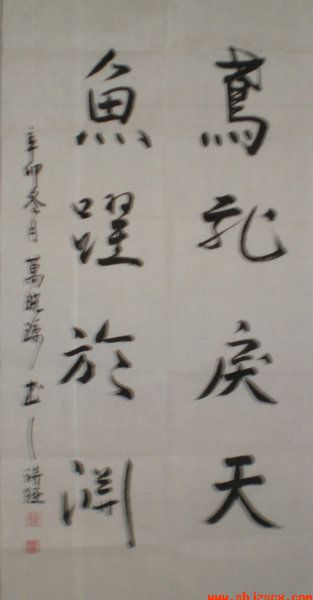 鳶飛戾天
魚躍於淵
辛卯冬月萬曉瑜书
诗经
www.shjzscx.com